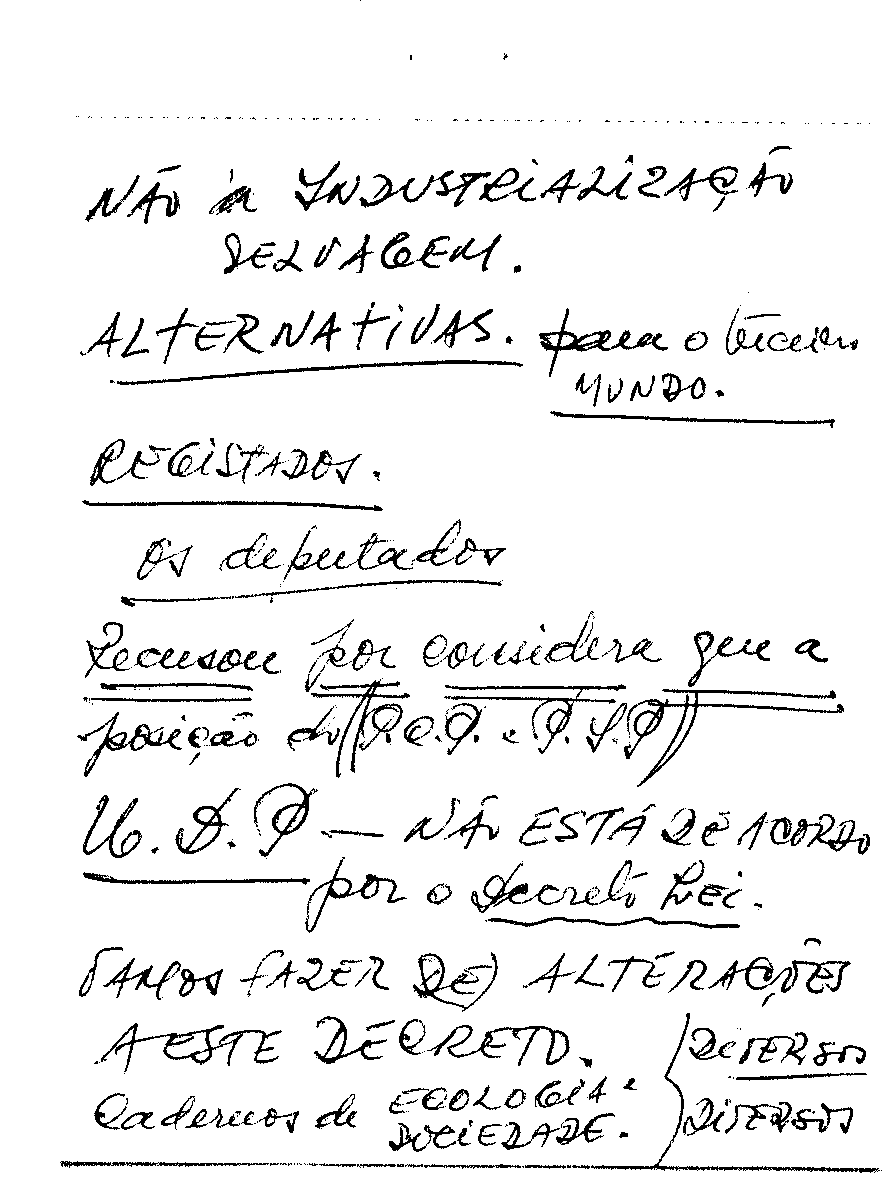 NÃO à INDUSTRIALIZAÇÃO
SELVAGEM.
ALTERNATIVAS. para o terceiro
MUNDO.
REGISTADOS.
os deputados
Recusou por considera que a
posição do ((P.C.P. e P.S.P))
U.D.P — NÃO ESTÁ DE ACORDO
por o Decreto Lei.
VAMOS FAZER (DE) ALTERAÇÕES
A ESTE DECRETO. } DIVERSOS
Cadernos de ECOLOGIA e
SOCIEDADE. } DIVERSOS